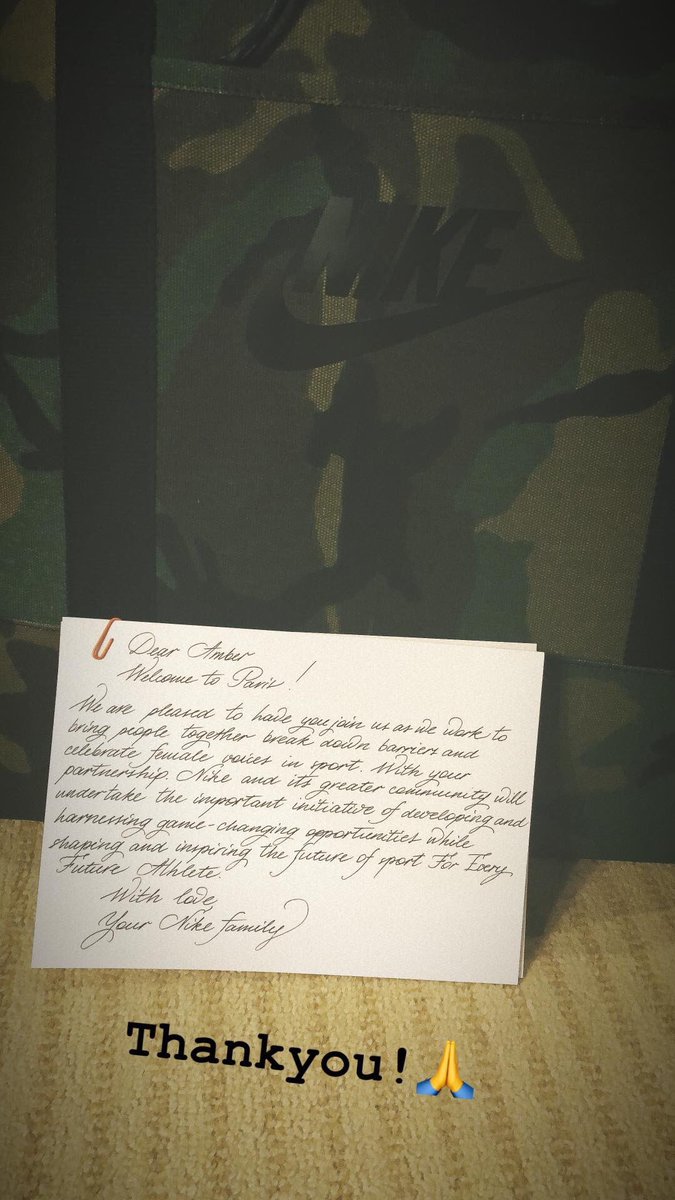 NIKE
Dear Amber
Welcome to Paris!
We are pleased to have you join us as we work to
bring people together break down barriers and
celebrate female voices in sport. With your
partnership. Nike and its greater community will
undertake the important initiative of developing and
harnessing game-changing opportunities while
shaping and inspiring the future of sport For Every
Future Athlete.
With love,
Your Nike family
Thankyou!🙏